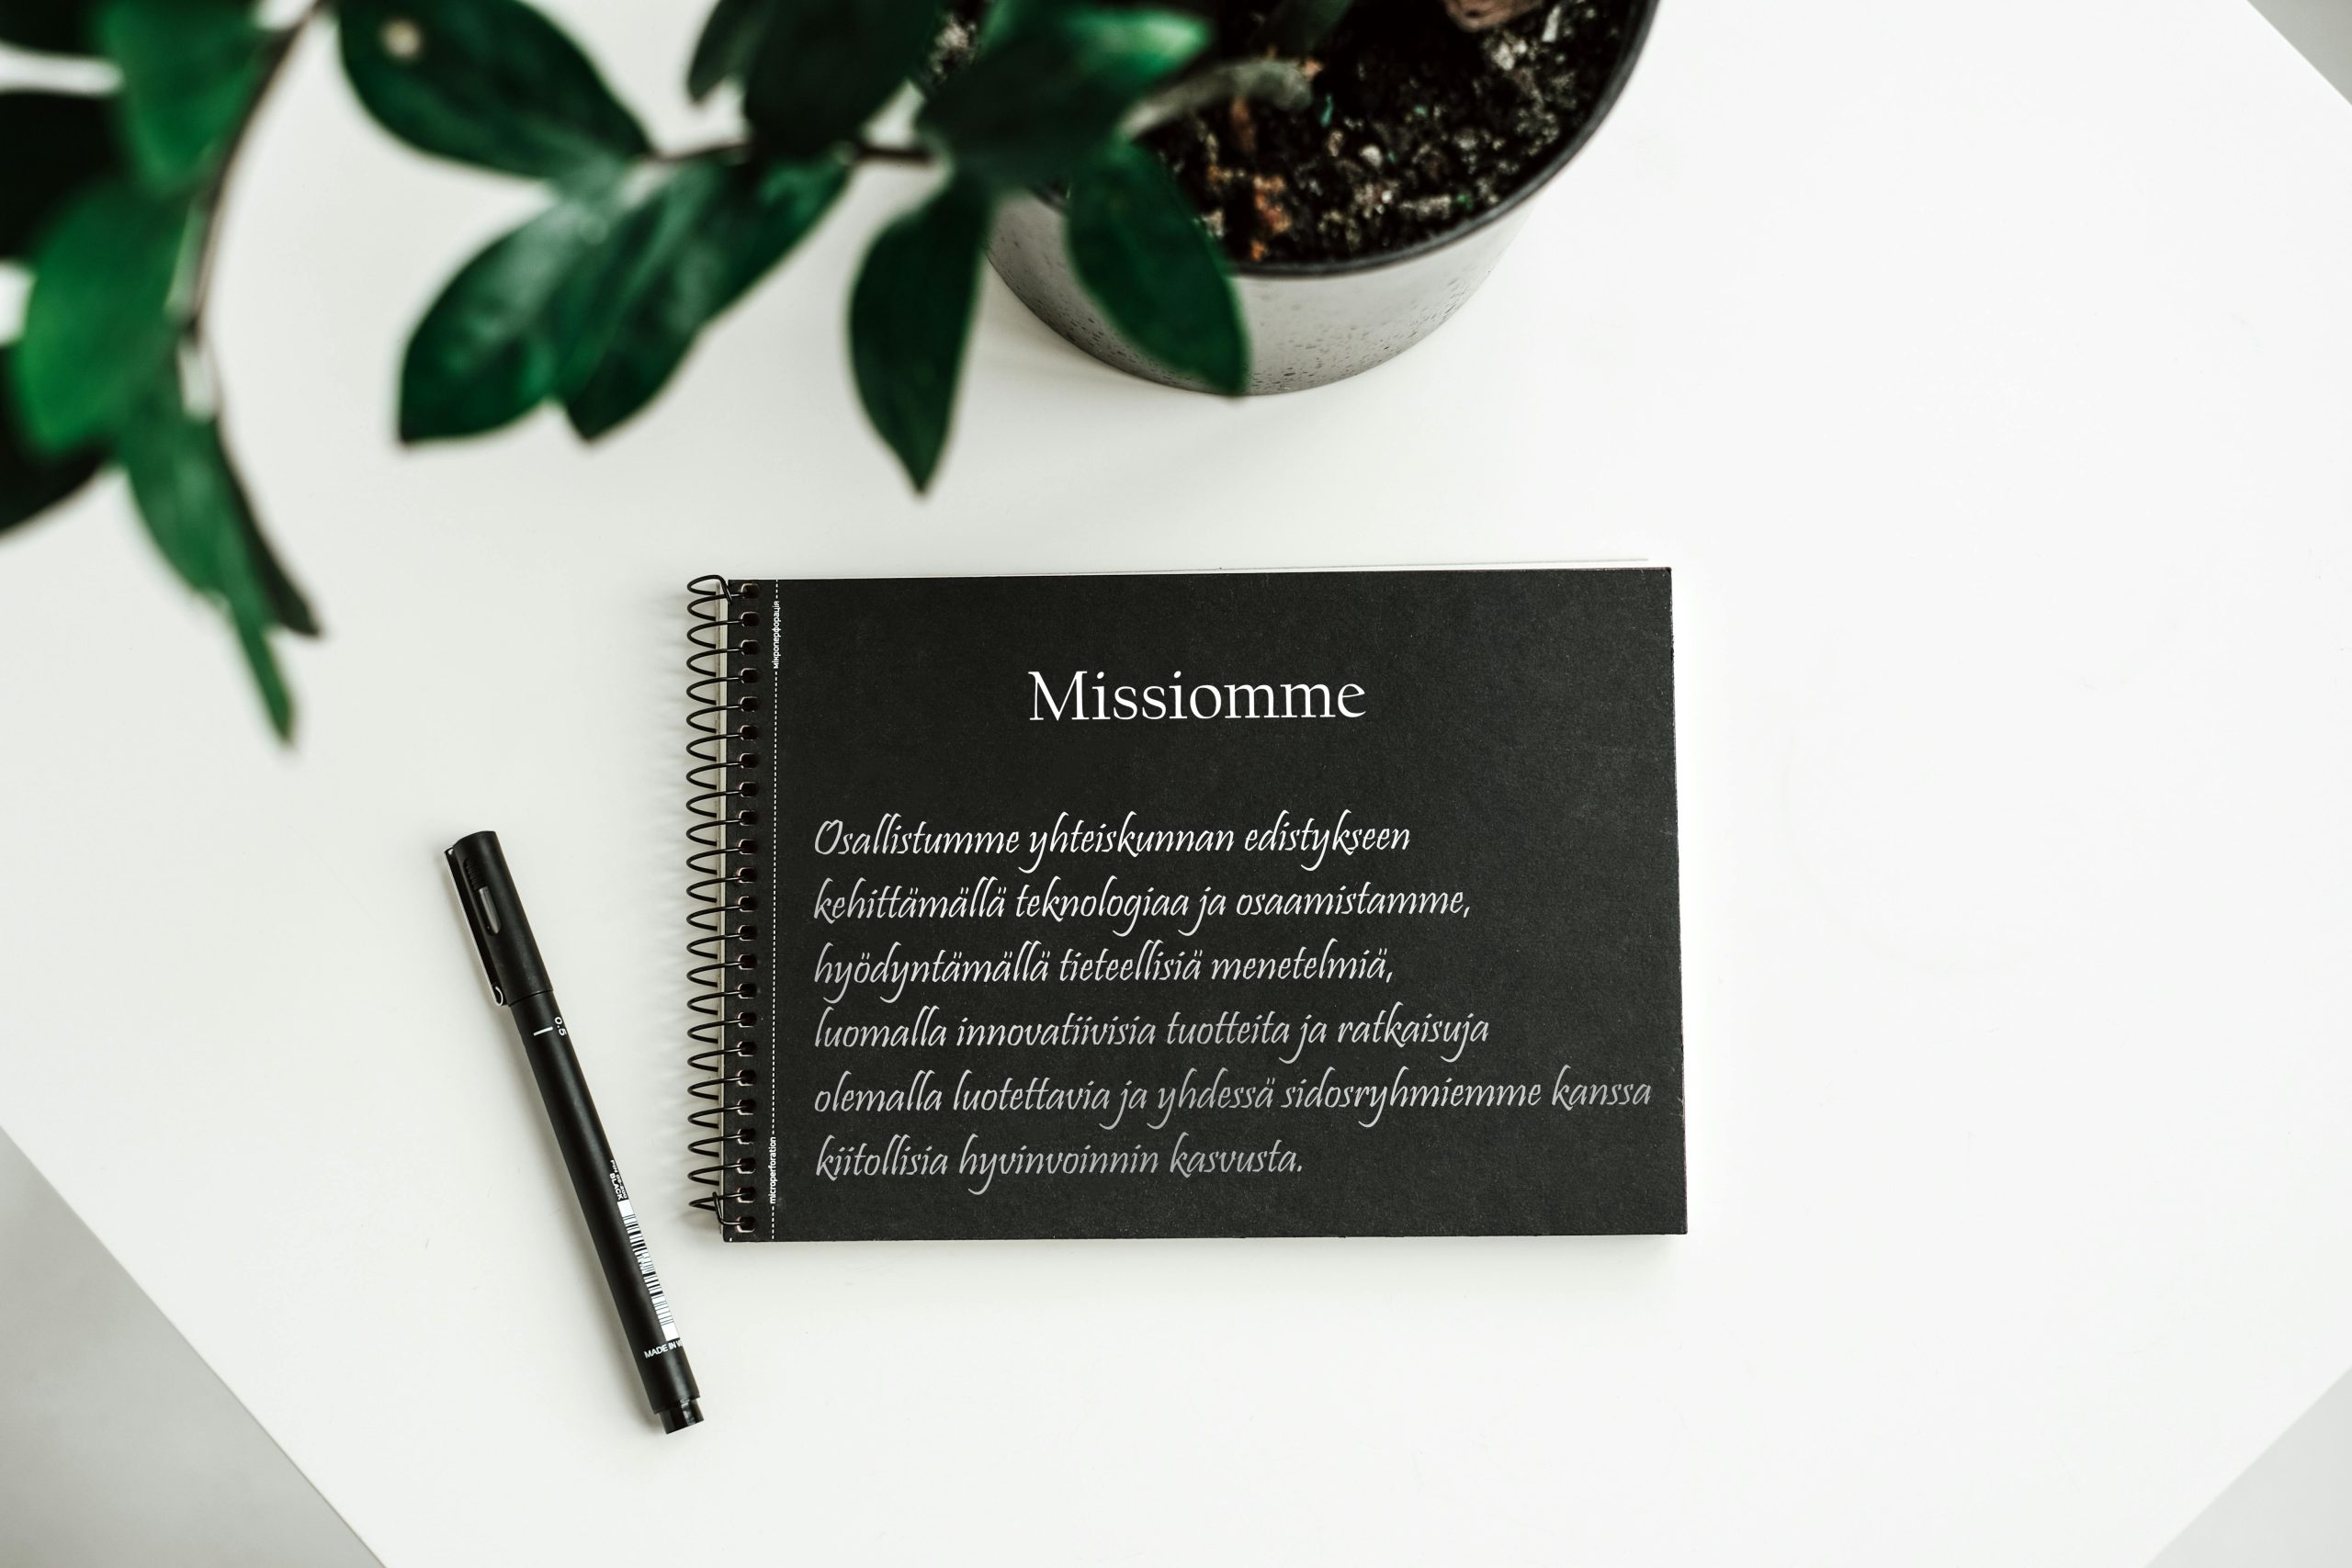 мікроперфорація
Missiomme
Osallistumme yhteiskunnan edistykseen
kehittämällä teknologiaa ja osaamistamme,
hyödyntämällä tieteellisiä menetelmiä,
luomalla innovatiivisia tuotteita ja ratkaisuja
olemalla luotettavia ja yhdessä sidosryhmiemme kanssa
kiitollisia hyvinvoinnin kasvusta.
microperforation
0.5
BLACK
MADE IN